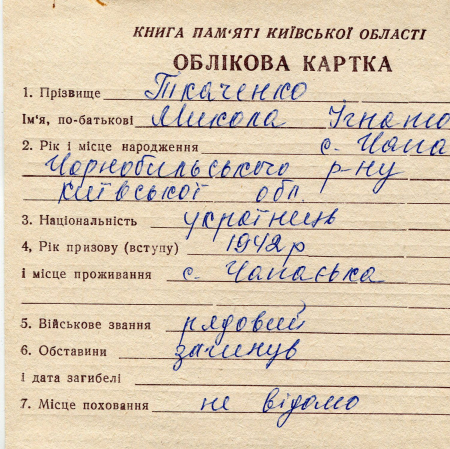 КНИГА ПАМ'ЯТІ КИЇВСЬКОЇ ОБЛАСТІ
ОБЛІКОВА КАРТКА
1. Прізвище Ткаченко
Ім'я, по-батькові Микола Ігнато
2. Рік і місце народження с. Чапа
Чорнобильського р-ну
Київської обл.
3. Національність українець
4, Рік призову (вступу) 1942 р
і місце проживання с. Чапаєвка
5. Військове звання рядовий
6. Обставини загинув
і дата загибелі
7. Місце поховання не відомо